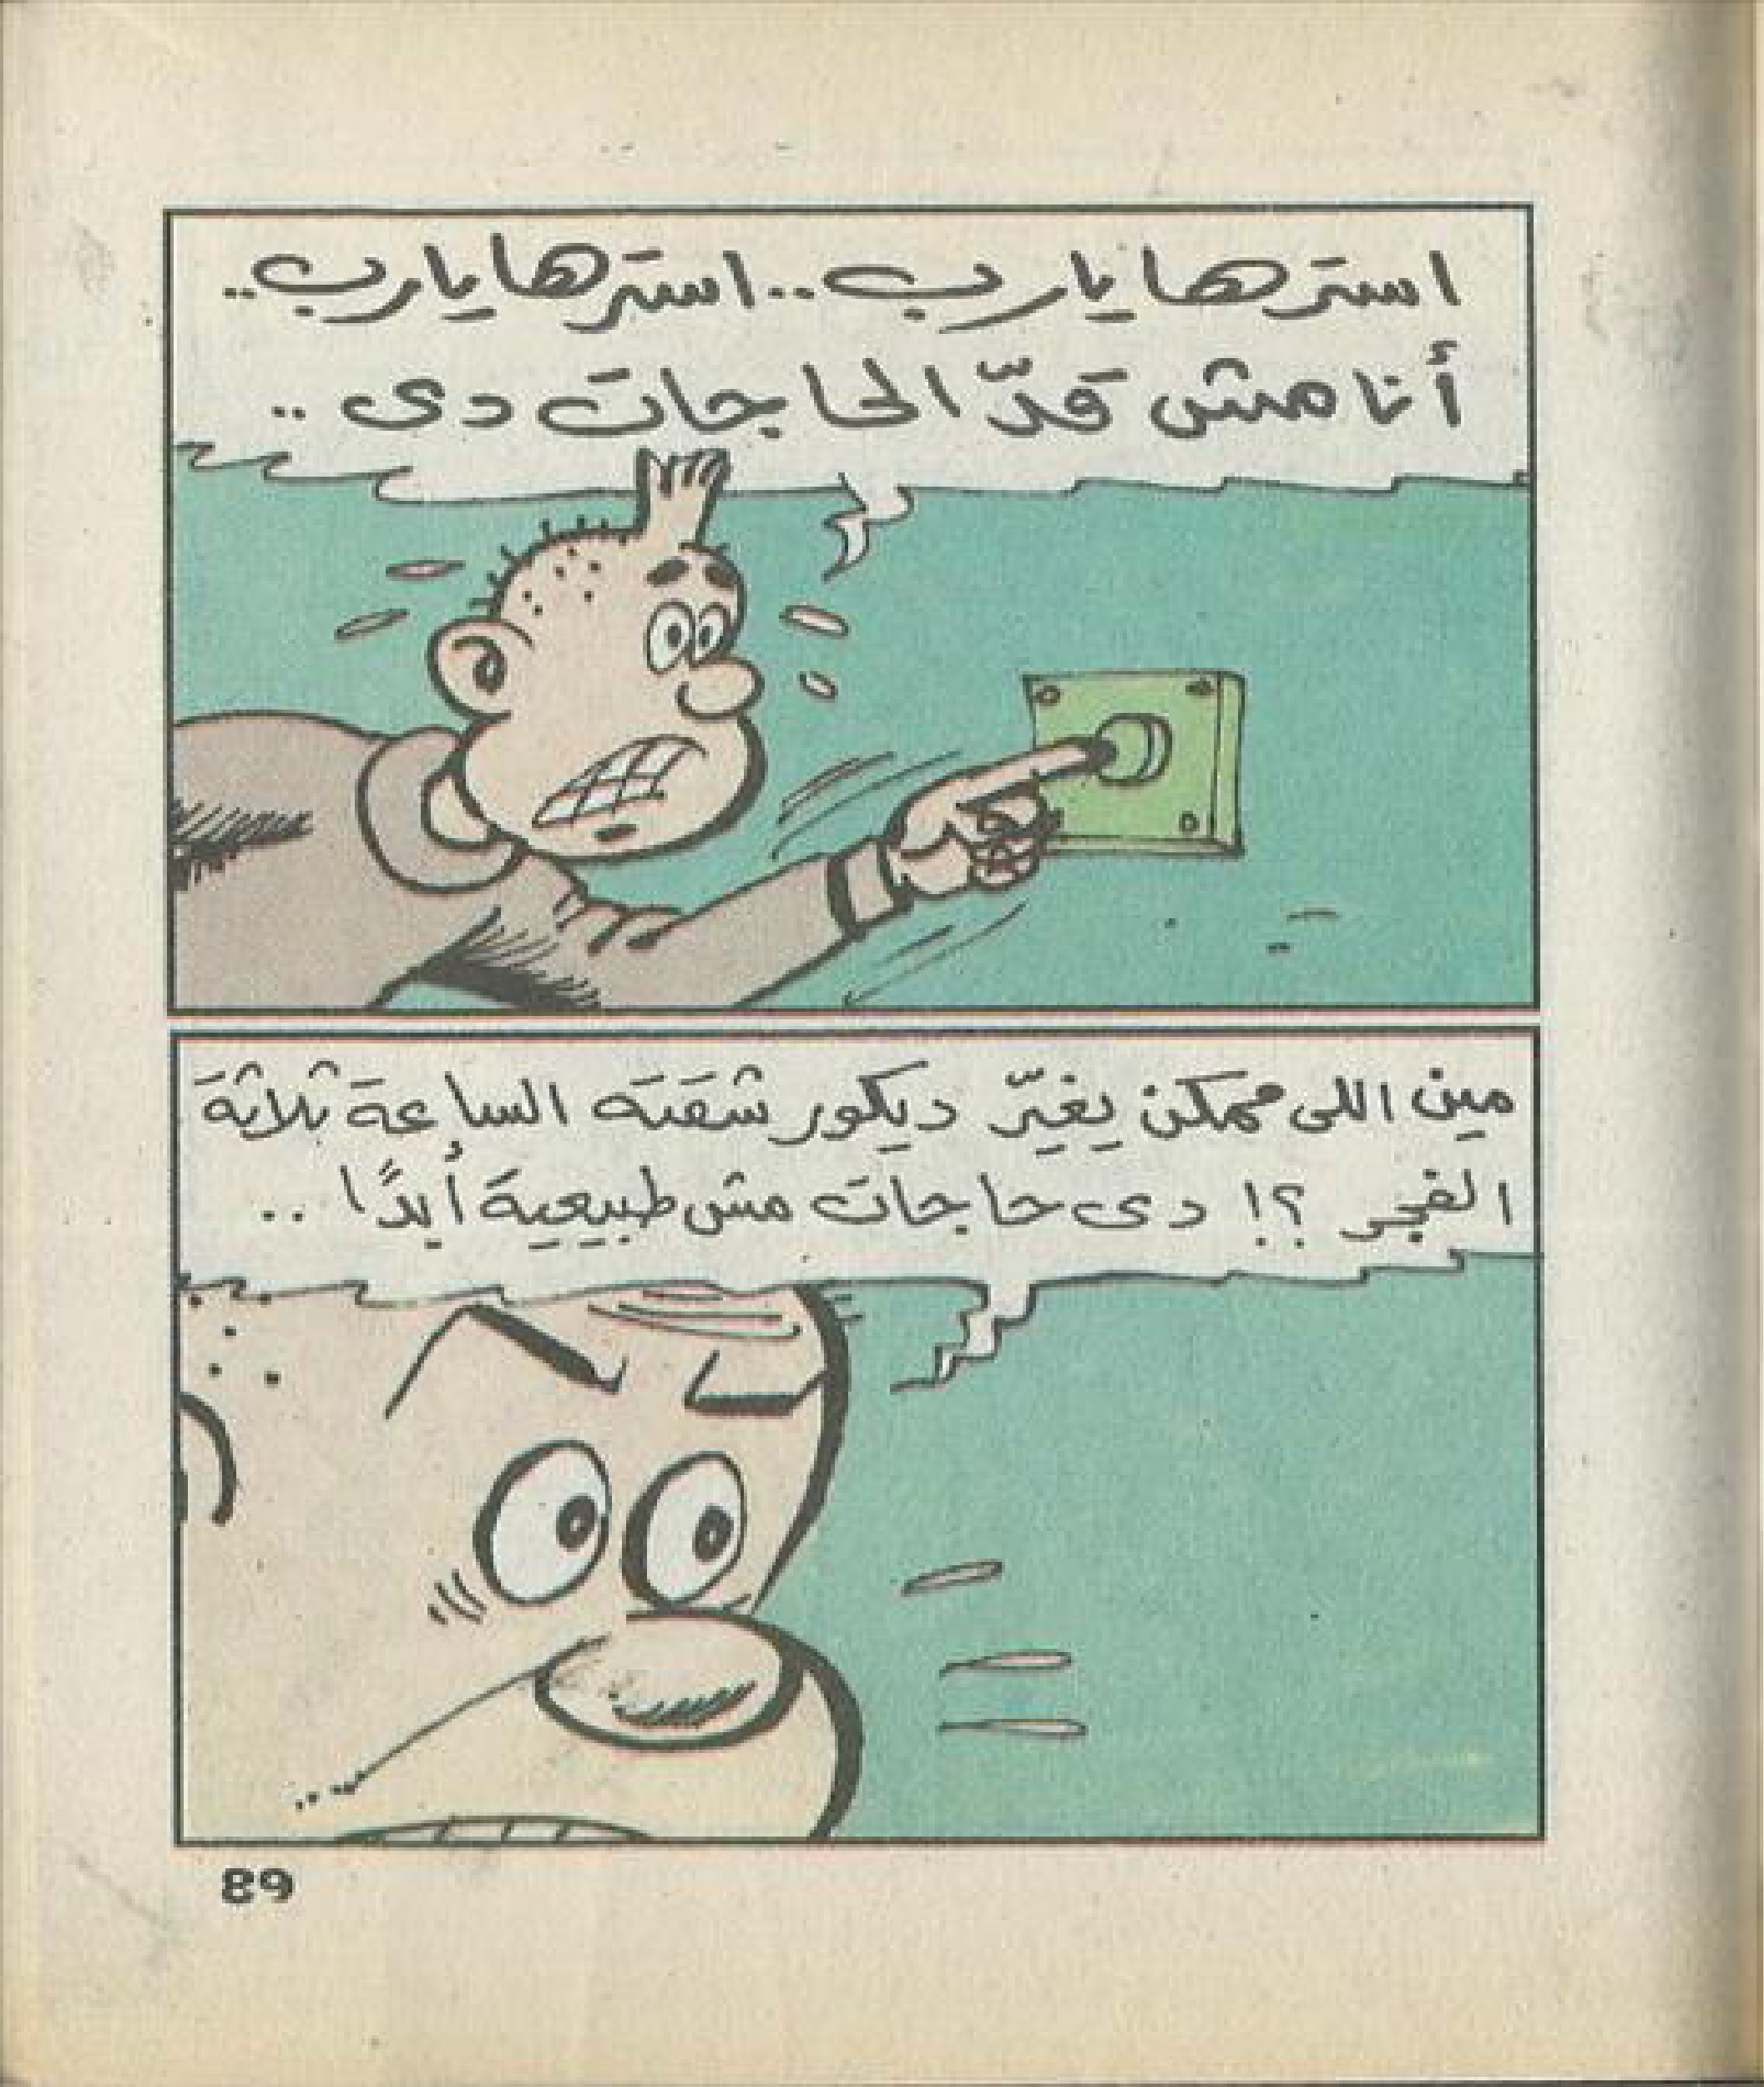 استرها يارب.. استرها يارب..
أنا مش قدّ الحاجات دى ..
مين اللى ممكن يغيّر ديكور شقته الساعة ثلاثة
الفجر ؟! دى حاجات مش طبيعية أبدًا ..
89